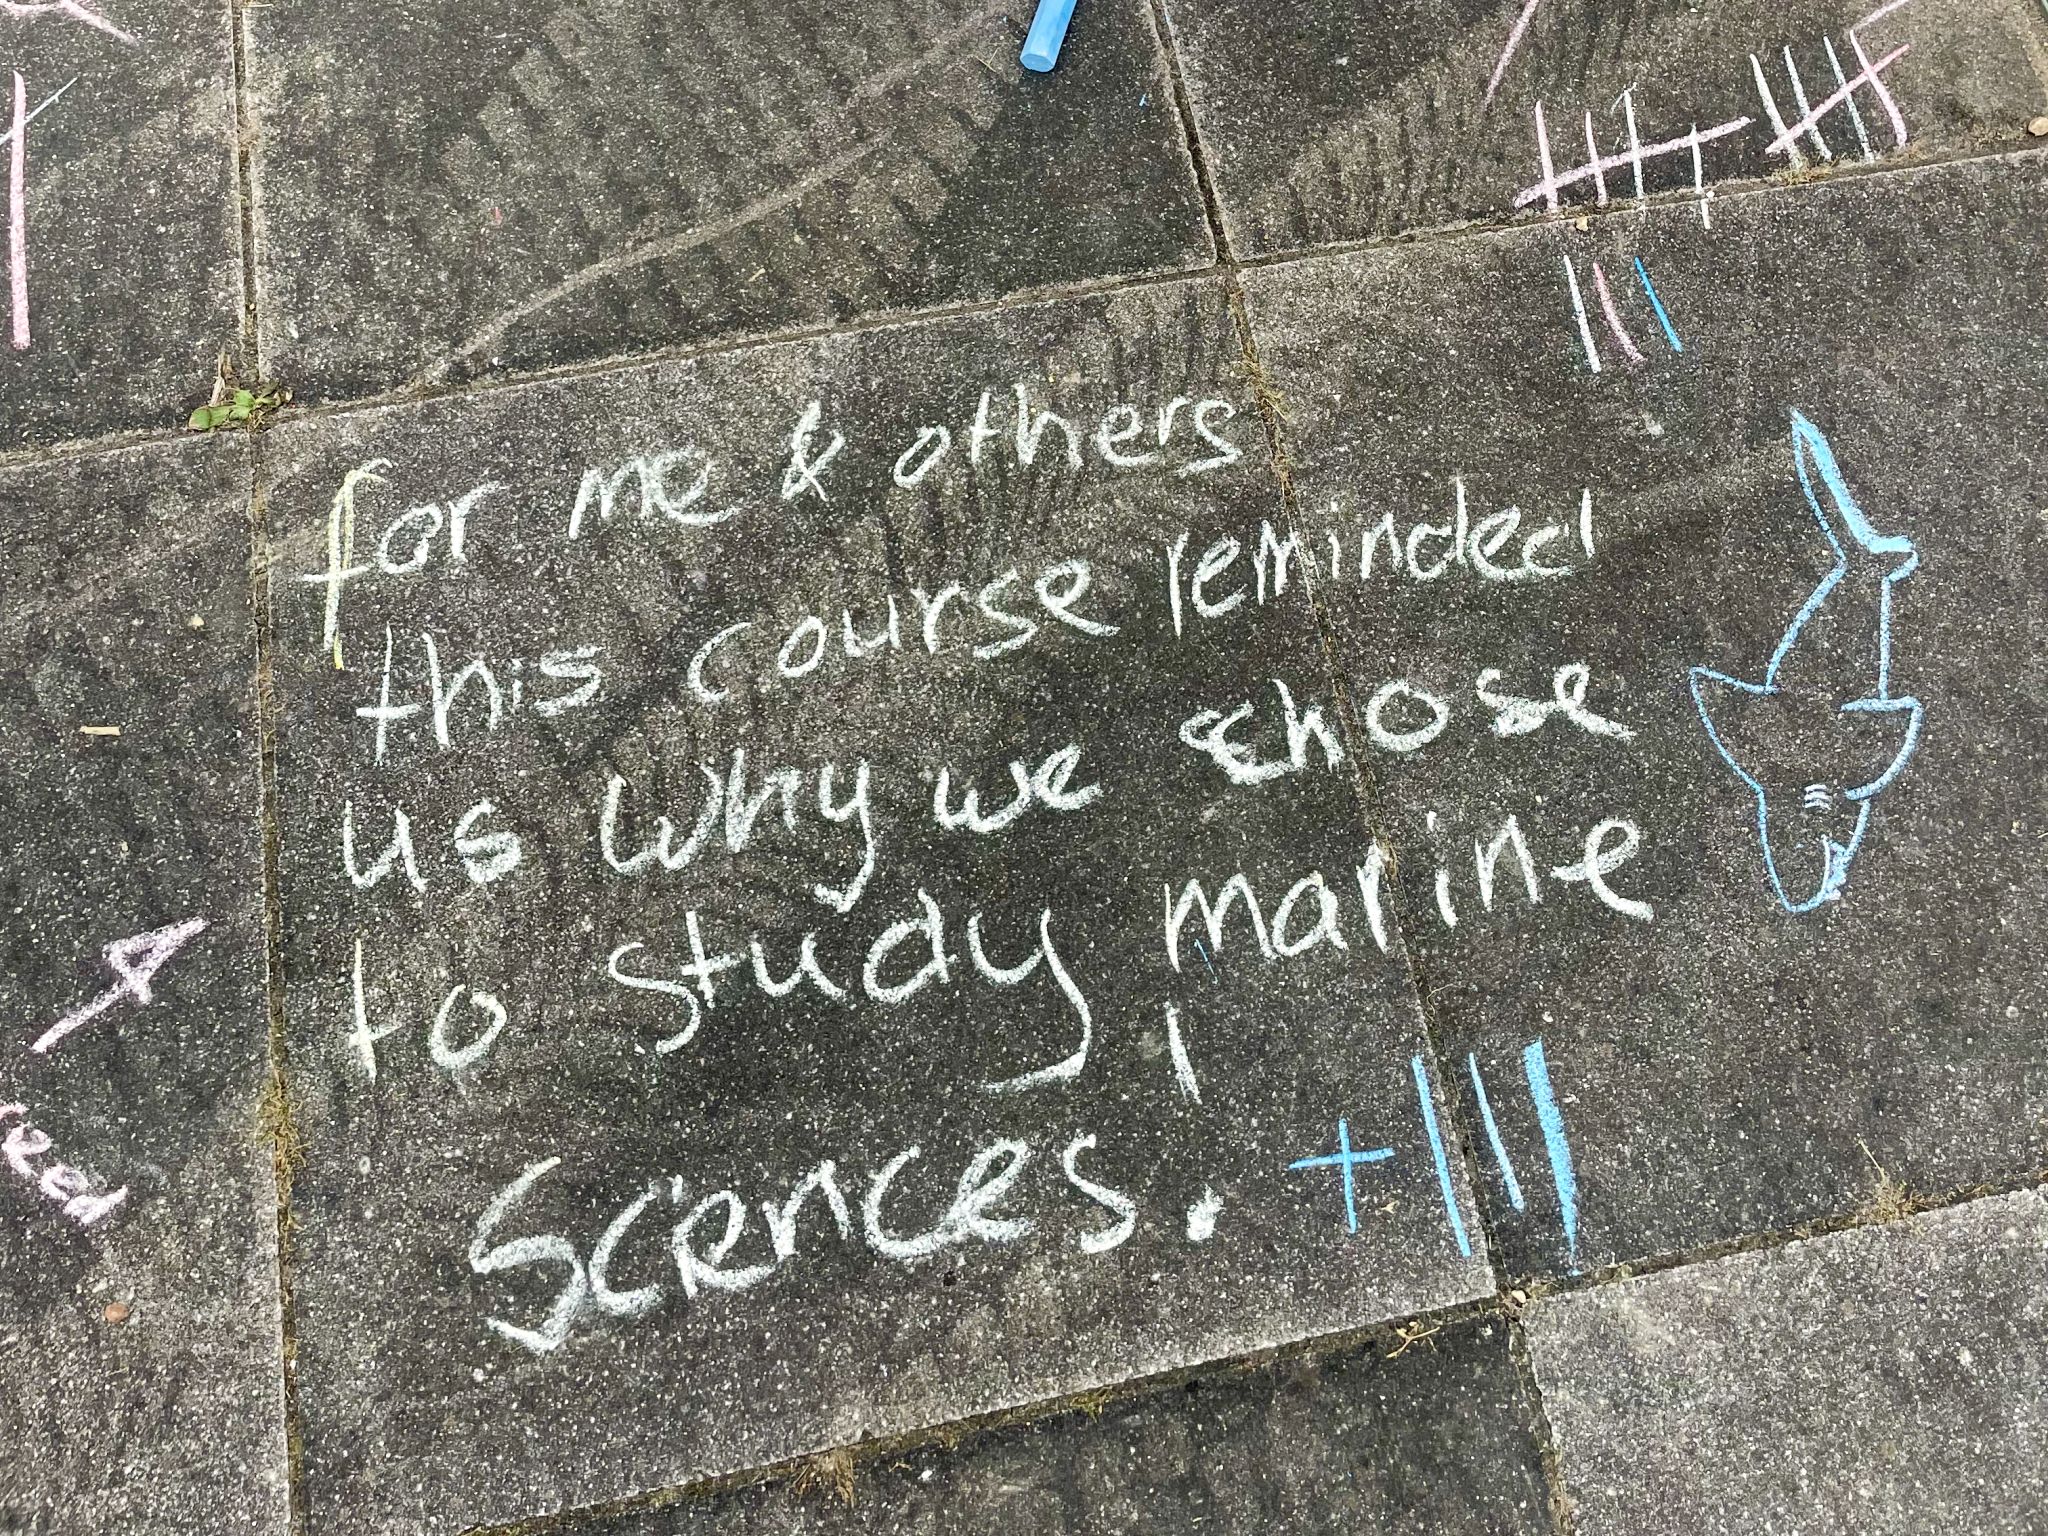 for me & others
this course reminded
us why we chose
to study marine
Sciences. +111